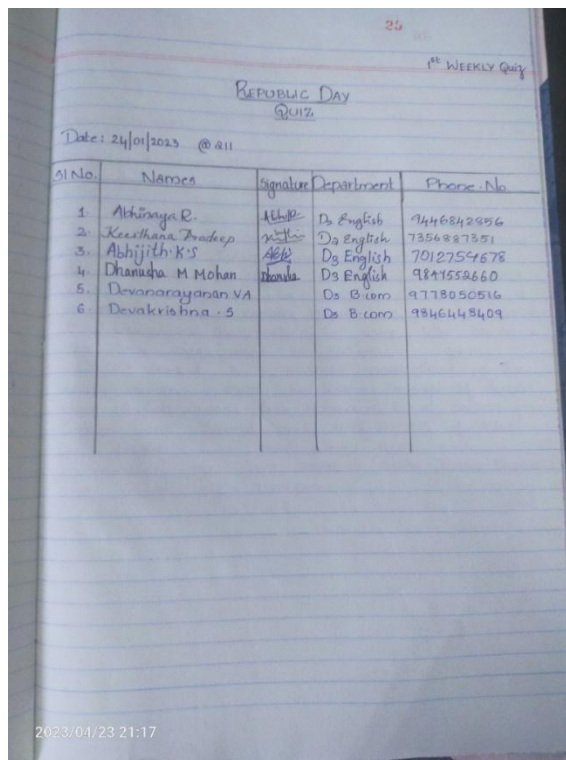 26
1st WEEKLY Quiz
REPUBLIC DAY
QUIZ
Date: 24/01/2023 @ Q11
Sl No. Names Signature Department Phone.No
1. Abhinaya R. D3 English 9446842856
2. Keerthana Pradeep D3 English 7356887351
3. Abhijith.K.S Abhi D3 English 7012754678
4. Dhanusha M Mohan Dhanusha D3 English 9847552660
5. Devanarayanan VA D3 B.com 9778050516
6. Devakrishna.S D3 B.com 9846448409
2023/04/23 21:17